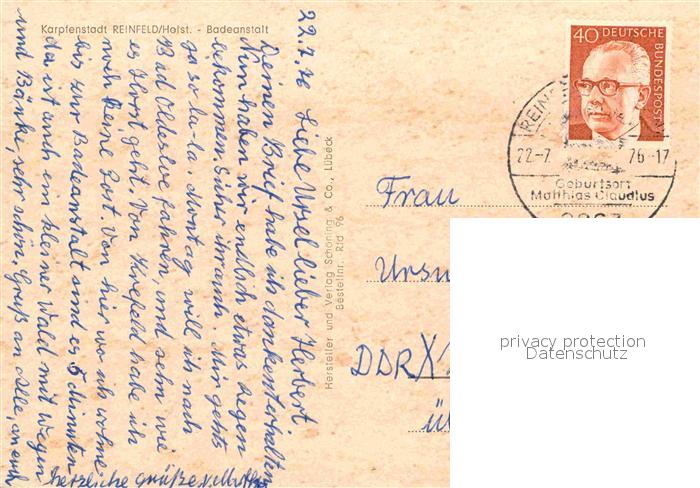 Karpfenstadt REINFELD/Holst. - Badeanstalt
22.7.76 Liebe Ursel lieber Herbert
Deinen Brief habe ich dankend erhalten
Nun haben wir endlich etwas Regen
bekommen. Sicher ihr auch. Mir gehts
ja so la-la. Montag will ich nach
Bad Oldesloe fahren, und sehn wie
es Horst geht. Von Krefeld habe ich
noch keine Post. Von hier wo ich wohne
bis zur Badeanstalt sind es 5 Minuten
da ist auch ein kleiner Wald mit Wegen
und Bänke, sehr schön. Gruß an Alle, an euch
herzliche Grüße v. Mutti
Hersteller und Verlag Schöning & Co., Lübeck
Bestellnr. Rfd 96
40 DEUTSCHE
BUNDESPOST
REINF
22-7 76-17
Geburtsort
Matthias Claudius
Frau
Ursu
DDR X
ü
privacy protection
Datenschutz